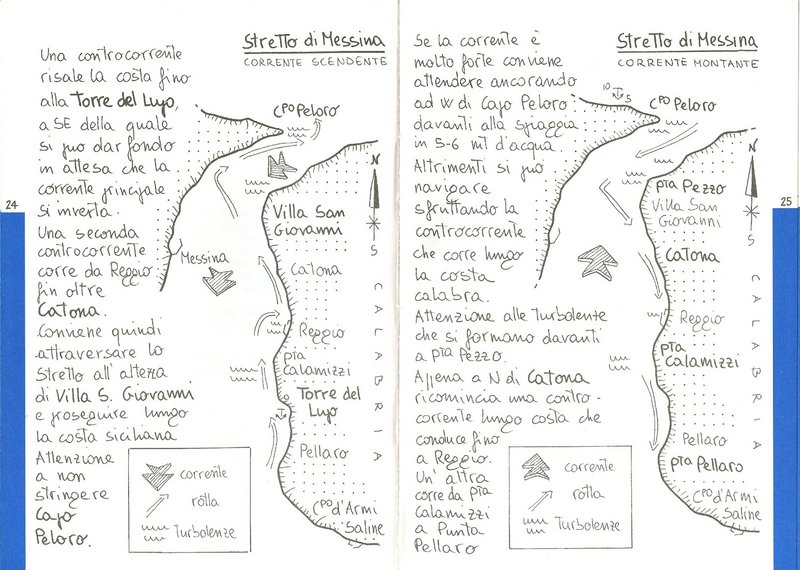 24
Una controcorrente
risale la costa fino
alla Torre del Lupo,
a SE della quale
si può dar fondo
in attesa che la
corrente principale
si inverta.
Una seconda
controcorrente
corre da Reggio
fin oltre
Catona.
Conviene quindi
attraversare lo
Stretto all'altezza
di Villa S. Giovanni
e proseguire lungo
la costa siciliana
Attenzione
a non
stringere
Capo
Peloro.
Stretto di Messina
CORRENTE SCENDENTE
Cpo Peloro
N
S
Villa San
Giovanni
Messina
Catona
Reggio
pta
Calamizzi
Torre del
Lupo
Pellaro
Cpo d'Armi
Saline
CALABRIA
corrente
rotta
Turbolenze
25
Se la corrente è
molto forte conviene
attendere ancorando
ad W di Capo Peloro
davanti alla spiaggia
in 5-6 mt d'acqua.
Altrimenti si può
navigare
sfruttando la
controcorrente
che corre lungo
la costa
calabra.
Attenzione alle Turbolenze
che si formano davanti
a pta Pezzo.
Appena a N di Catona
ricomincia una contro-
corrente lungo costa che
conduce fino
a Reggio.
Un'altra
corre da pta
Calamizzi
a Punta
Pellaro
Stretto di Messina
CORRENTE MONTANTE
10
5
Cpo Peloro
N
S
pta Pezzo
Villa San
Giovanni
Catona
Reggio
pta
Calamizzi
Pellaro
pta Pellaro
Cpo d'Armi
Saline
CALABRIA
corrente
rotta
Turbolenze